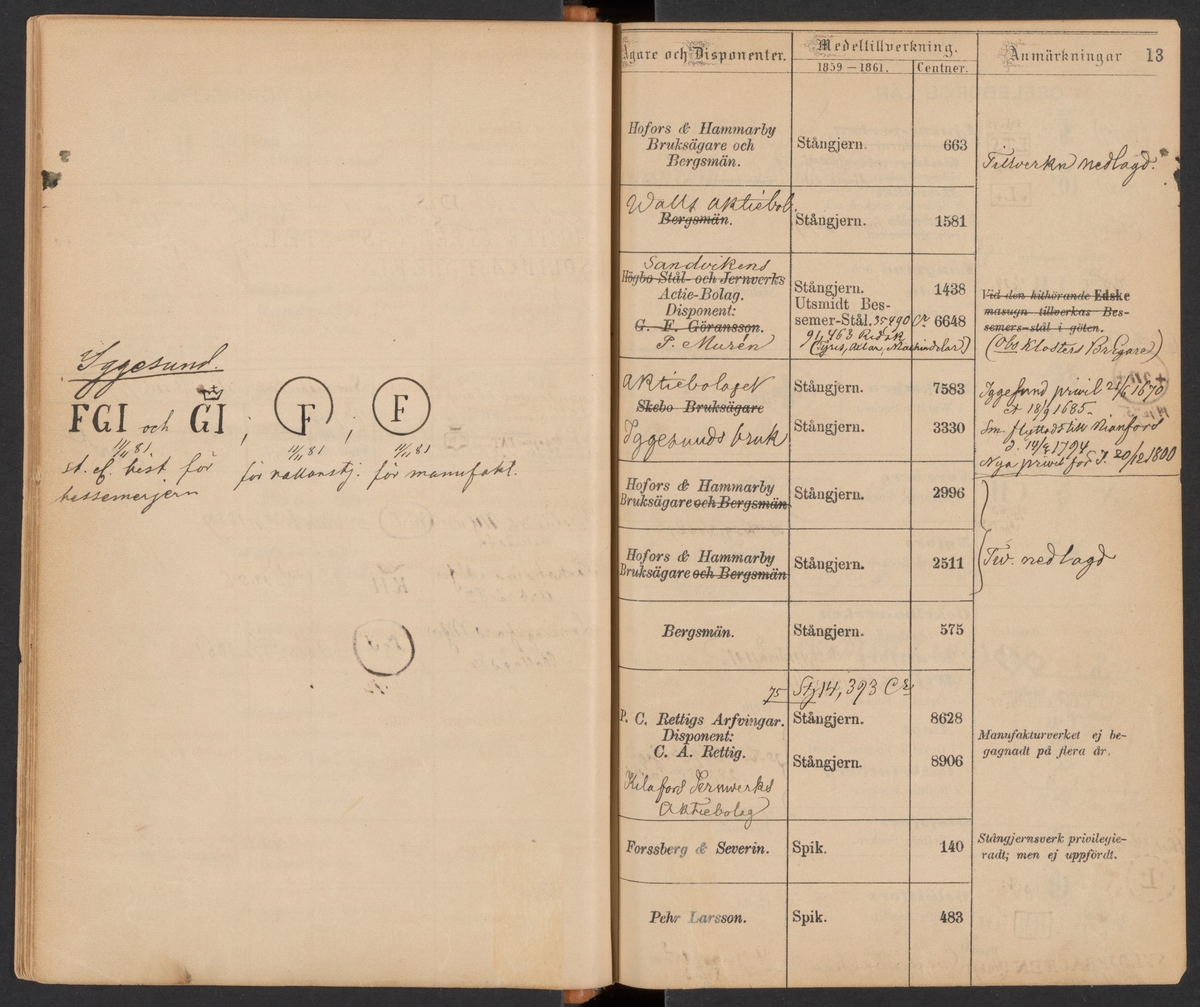 Iggesund.
FGI och GI ; F ; F
11/11 81. 11/11 81 11/11 81
st. best för för vallonstj. för manufakt.
bessemerjern
Ägare och Disponenter. Medeltillverkning. Anmärkningar 13
1859—1861. Centner.
Hofors & Hammarby
Bruksägare och
Bergsmän.
Stångjern. 663
Tillverkn nedlagd.
Walls Aktiebol.
Bergsmän.
Stångjern. 1581
Sandvikens
Högbo Stål- och Jernverks
Actie-Bolag.
Disponent:
G. F. Göransson.
P. Murén
Stångjern. 1438
Utsmidt Bes-
semer-Stål. 35490 Cr 6648
91,463
Vid den hithörande Edske
masugn tillverkas Bes-
semers-stål i göten.
(Obs Klosters Br.egare)
Aktiebolaget
Skebo Bruksägare
Iggesunds bruk
Stångjern. 7583
Stångjern. 3330
Iggesund privil 1670
et 18/9 1685.
Sm. flyttadt till Nianfors
d. 14/2 1794
Nya privil för I. 20/12 1800
Hofors & Hammarby
Bruksägare och Bergsmän
Stångjern. 2996
Hofors & Hammarby
Bruksägare och Bergsmän
Stångjern. 2511
Tiv. nedlagd
Bergsmän.
Stångjern. 575
75 Stj 14,393 Cr
P. C. Rettigs Arfvingar.
Disponent:
C. A. Rettig.
Kilafors Jernwerks
Aktiebolag
Stångjern. 8628
Stångjern. 8906
Manufakturverket ej be-
gagnadt på flera år.
Forssberg & Severin.
Spik. 140
Stångjernsverk privilegie-
radt; men ej uppfördt.
Pehr Larsson.
Spik. 483